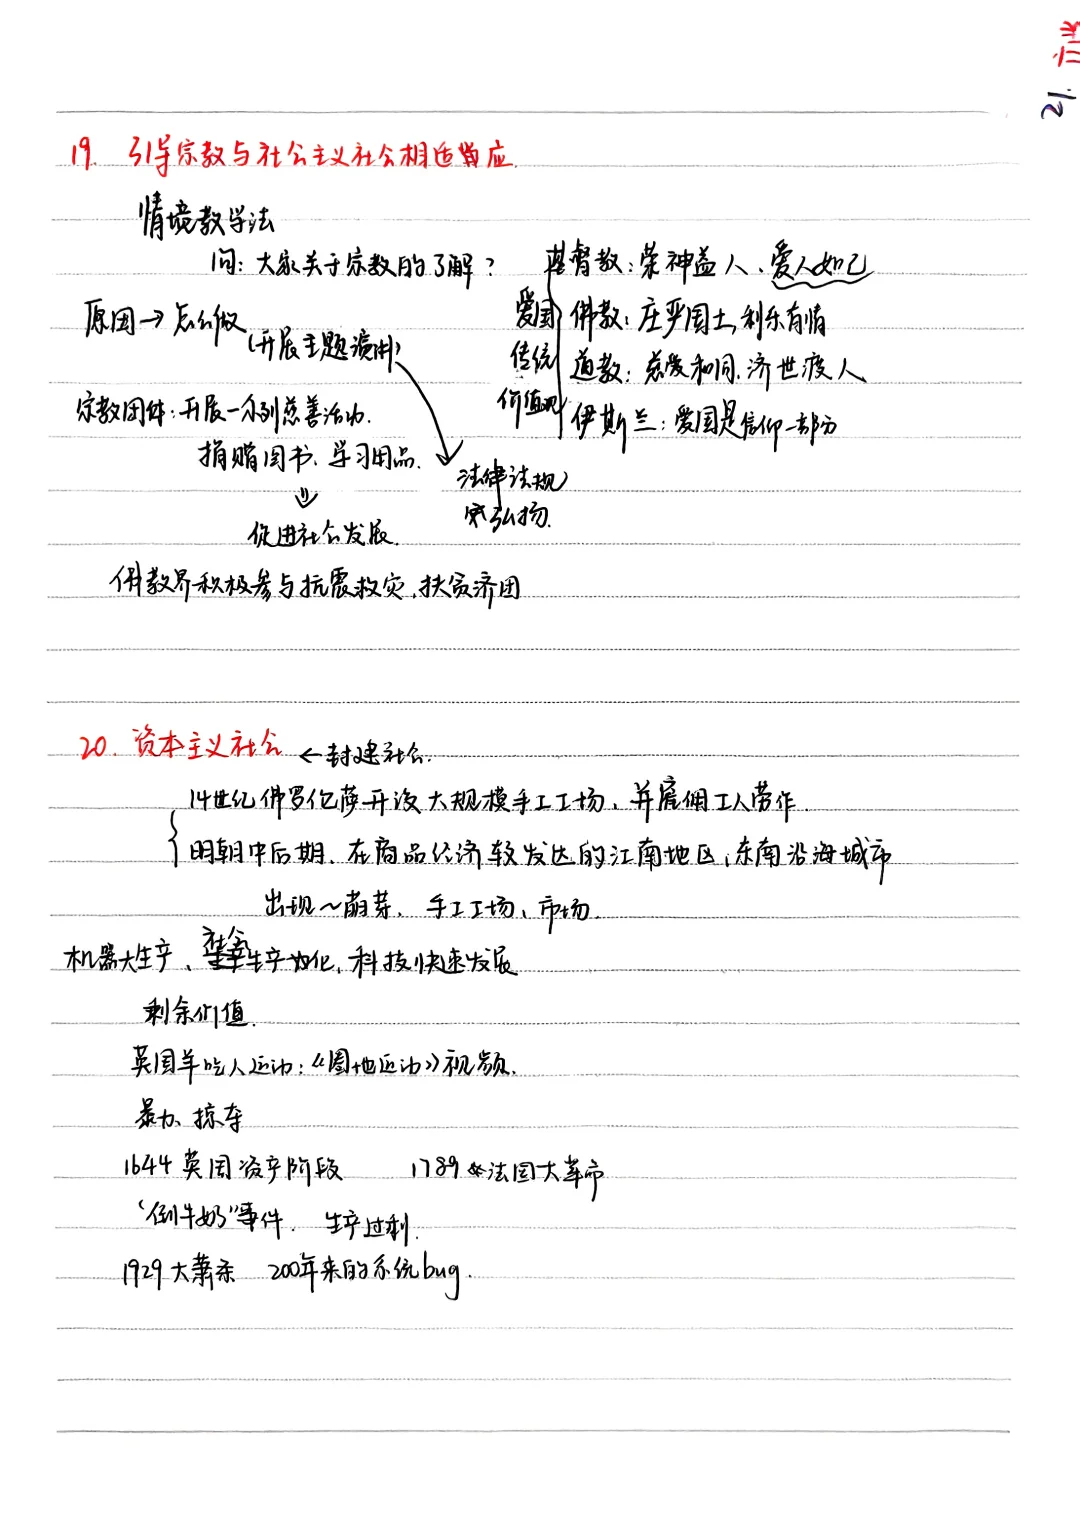 19. 引导宗教与社会主义社会相适应
情境教学法
问：大家关于宗教的了解？
基督教：荣神益人、爱人如己
原因→怎么做
(开展主题演讲)
爱国
传统
价值观
佛教：庄严国土，利乐有情
道教：慈爱和同、济世渡人
伊斯兰：爱国是信仰一部分
宗教团体：开展一系列慈善活动.
捐赠图书、学习用品.
法律法规
弘扬.
⇓
促进社会发展.
佛教界积极参与抗震救灾,扶贫济困
20. 资本主义社会 ←封建社会.
14世纪佛罗伦萨开设大规模手工工场、并雇佣工人劳作.
明朝中后期、在商品经济较发达的江南地区,东南沿海城市
出现~萌芽、手工工场、市场.
机器大生产、社会生产力化,科技快速发展
剩余价值.
英国羊吃人运动：《圈地运动》视频.
暴力、掠夺
1644 英国资产阶段 1789 法国大革命
“倒牛奶”事件. 生产过剩.
1929大萧条 200年来的系统bug.